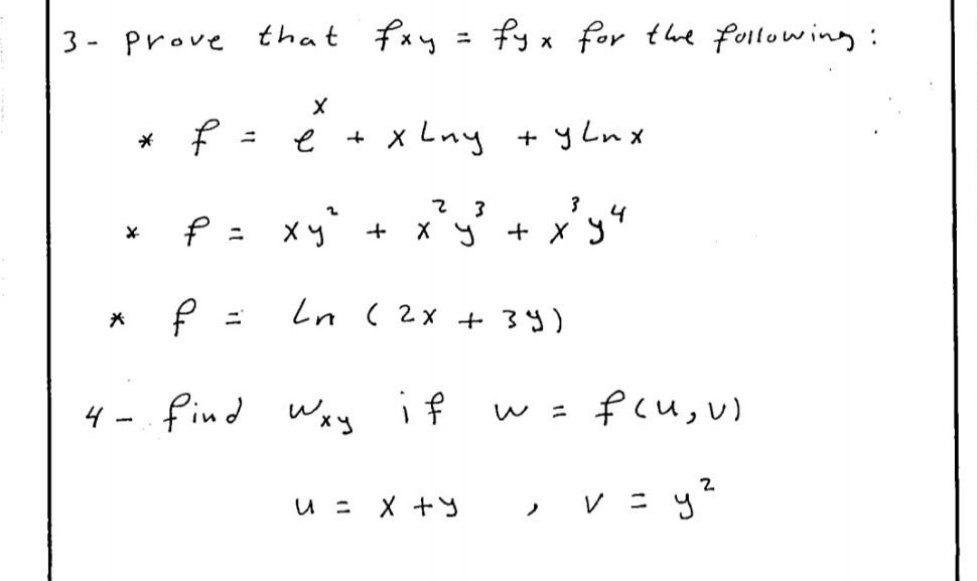 3- prove that fxy = fyx for the following :
* f = eˣ + x Lny + y Lnx
* f = xy² + x²y³ + x³y⁴
* f = Ln ( 2x + 3y )
4 - find wxy if w = f(u,v)
u = x + y , v = y²